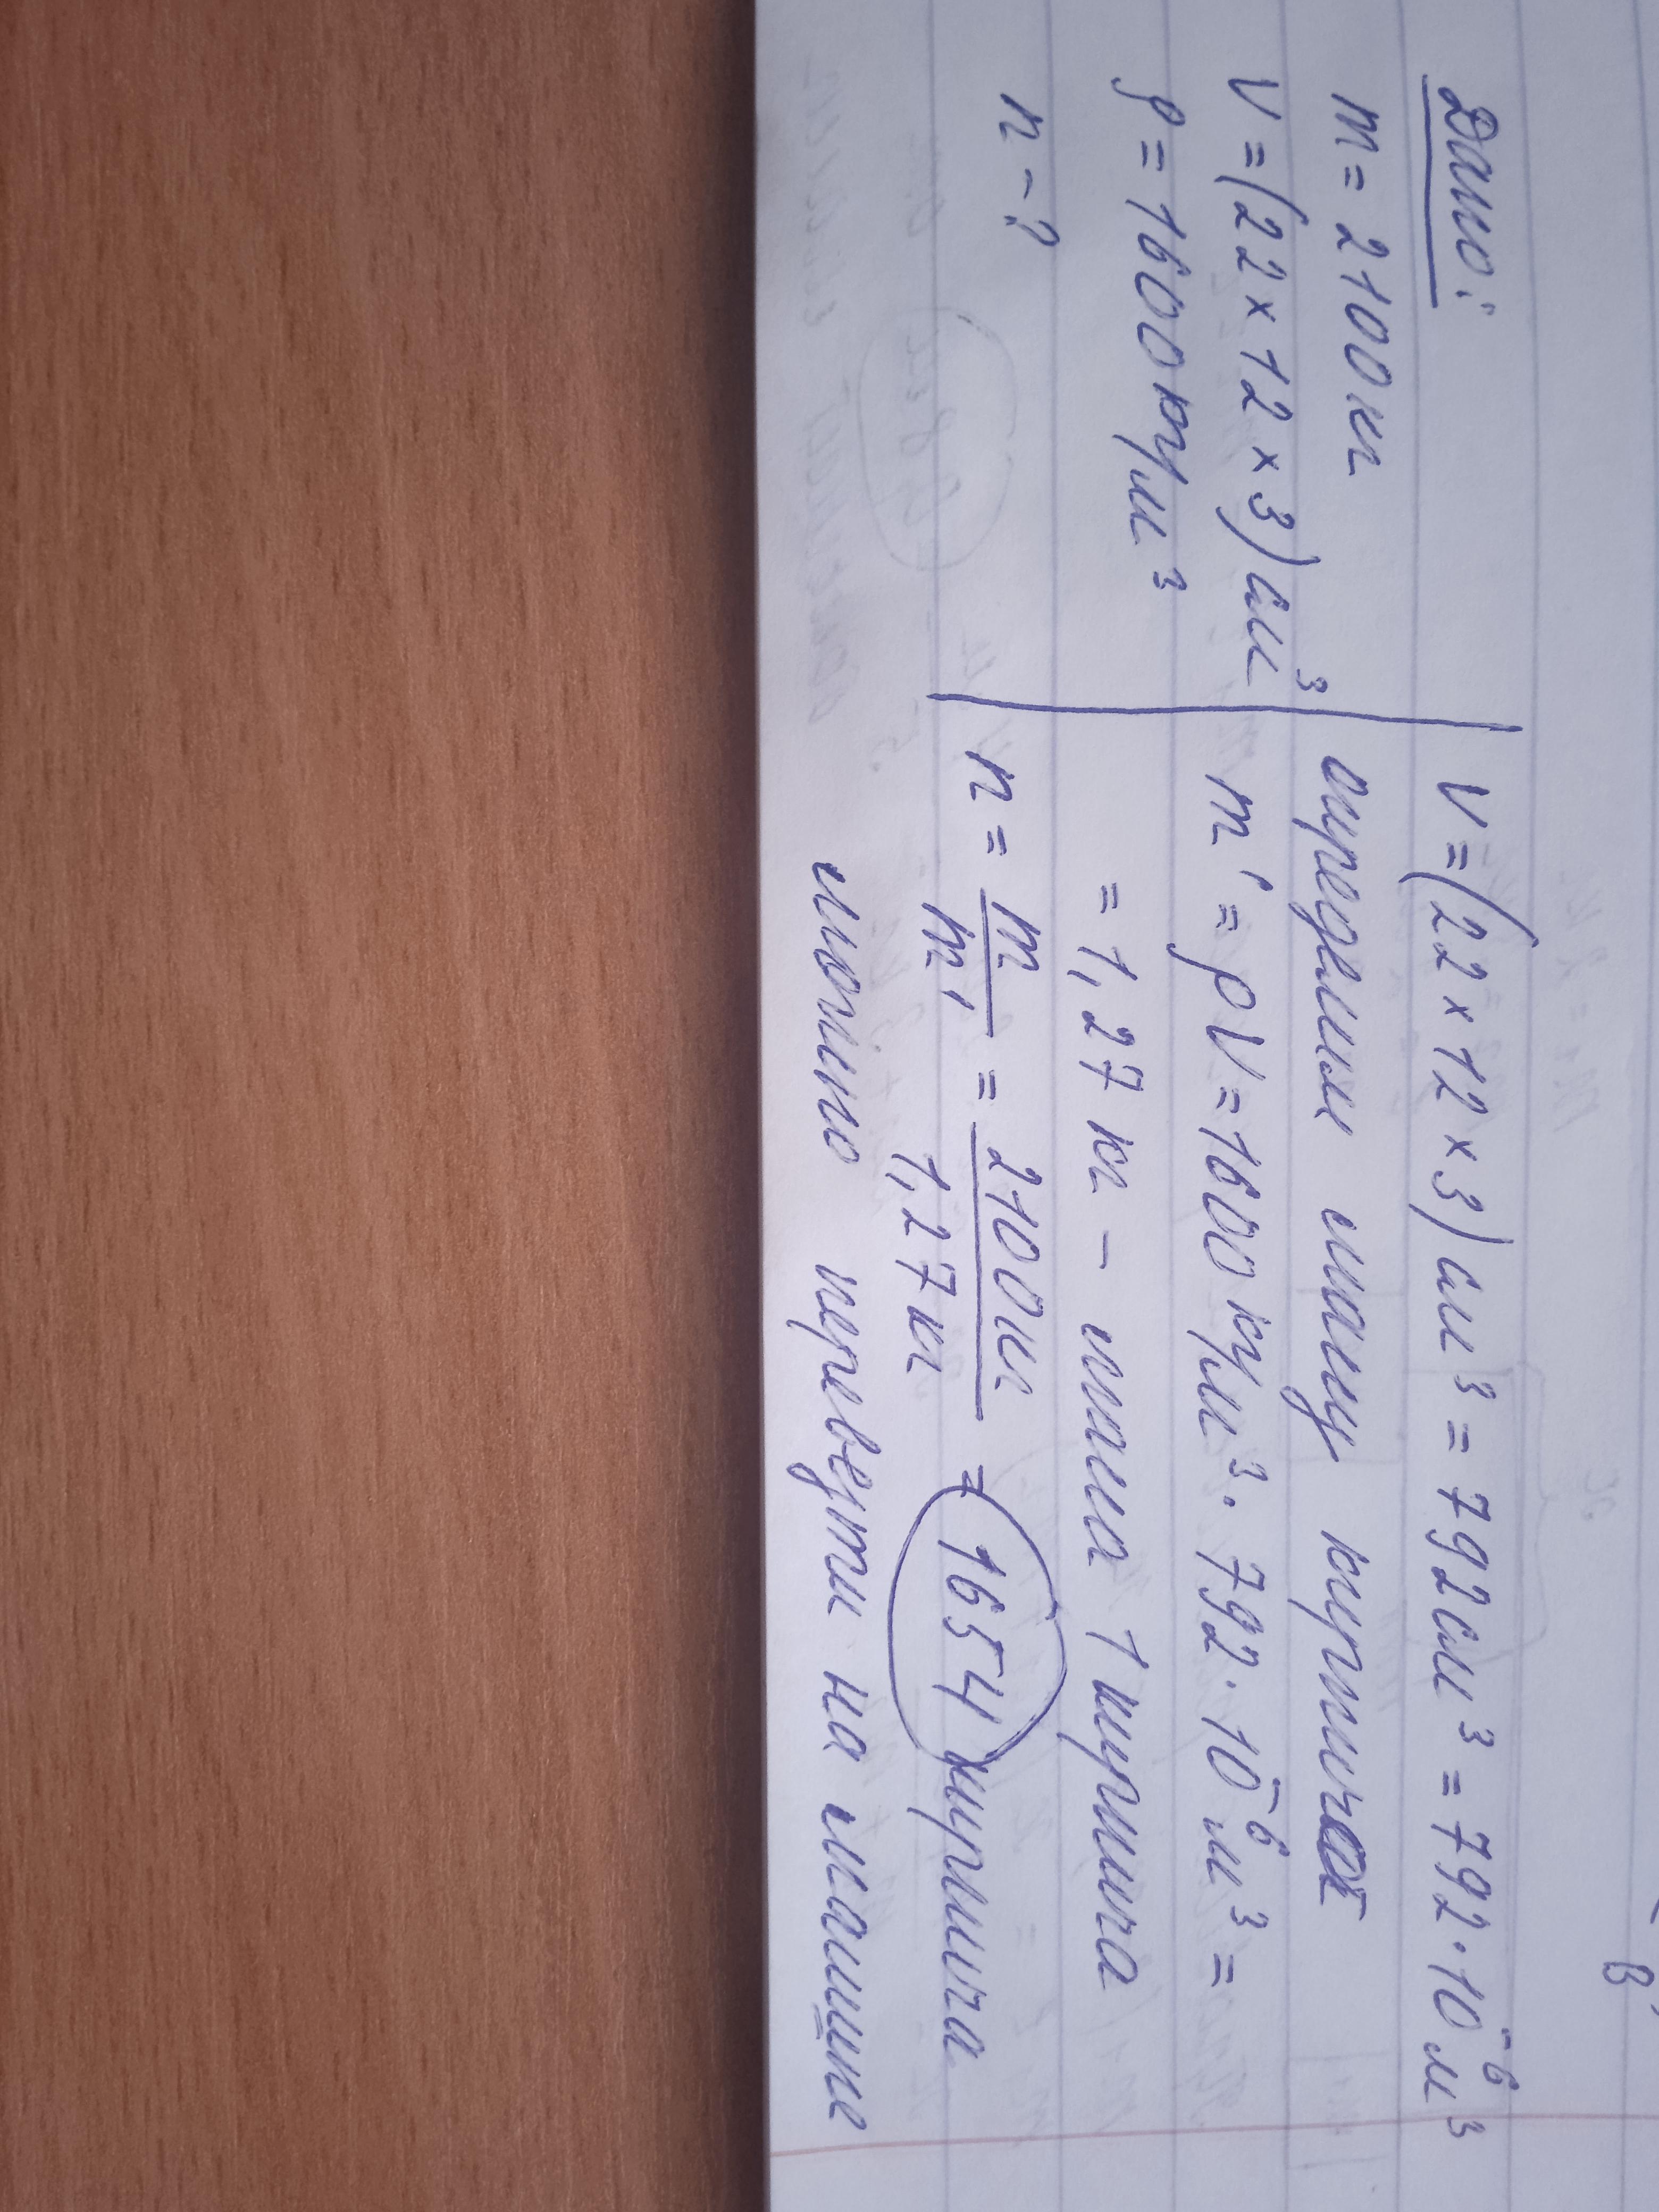 Дано:
m = 2100 кг
V = (22 × 12 × 3) см³
ρ = 1600 кг/м³
n - ?
V = (22 × 12 × 3) см³ = 792 см³ = 792 · 10⁻⁶ м³
определим массу кирпича
m' = ρV = 1600 кг/м³ · 792 · 10⁻⁶ м³ =
= 1,27 кг - масса 1 кирпича
n = m/m' = 2100 кг/1,27 кг = 1654 кирпича
можно перевезти на машине